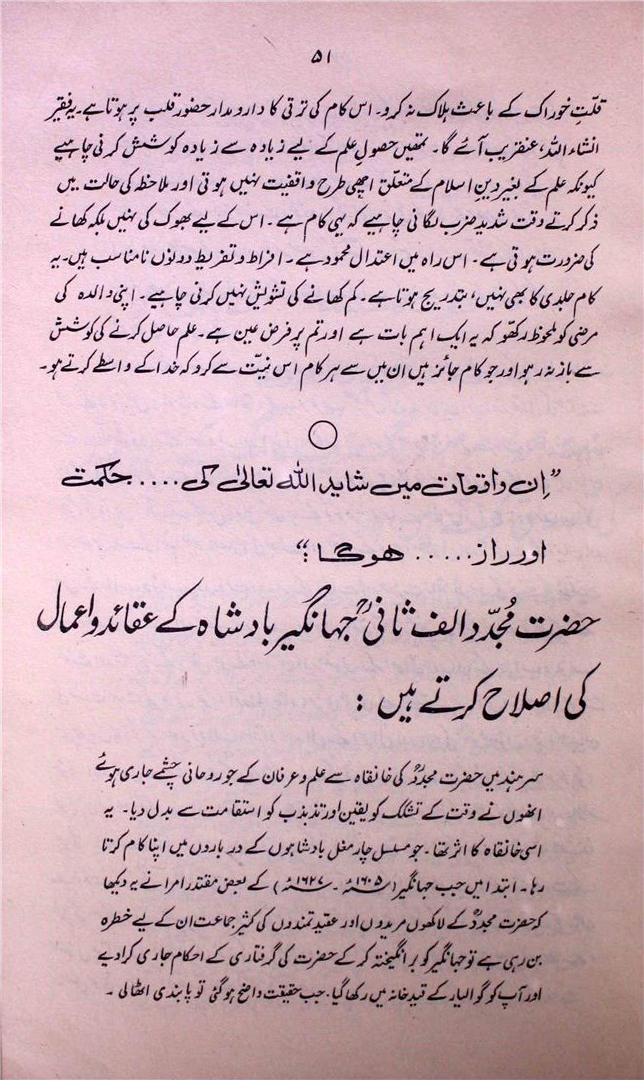 ۵۱
قلّتِ خوراک کے باعث ہلاک نہ کرو۔ اس کام کی ترقی کا دارومدار حضور قلب پر ہوتا ہے۔ یہ فقیر
انشاء اللہ، عنقریب آئے گا۔ تمھیں حصولِ علم کے لیے زیادہ سے زیادہ کوشش کرنی چاہیے
کیونکہ علم کے بغیر دینِ اسلام کے متعلق اچھی طرح واقفیت نہیں ہوتی اور ملاحظہ کی حالت میں
ذکر کرتے وقت شدید ضرب لگانی چاہیے کہ یہی کام ہے۔ اس کے لیے بھوک کی نہیں بلکہ کھانے
کی ضرورت ہوتی ہے۔ اس راہ میں اعتدال محمود ہے۔ افراط و تفریط دونوں نامناسب ہیں۔ یہ
کام جلدی کا بھی نہیں، بتدریج ہوتا ہے۔ کم کھانے کی تشویش نہیں کرنی چاہیے۔ اپنی والدہ کی
مرضی کو ملحوظ رکھو کہ یہ ایک اہم بات ہے اور تم پر فرض عین ہے۔ علم حاصل کرنے کی کوشش
سے باز نہ رہو اور جو کام جائز ہیں ان میں سے ہر کام اس نیّت سے کرو کہ خدا کے واسطے کرتے ہو۔
”اِن واقعات میں شاید اللہ تعالیٰ کی .... حکمت
اور راز ..... ہوگا؛“
حضرت مُجدّد الف ثانیؒ جہانگیر بادشاہ کے عقائد و اعمال
کی اصلاح کرتے ہیں :
سرہند میں حضرت مجددؒ کی خانقاہ سے علم و عرفان کے جو روحانی چشمے جاری ہوئے
انھوں نے وقت کے تشکک کو یقین اور تذبذب کو استقامت سے بدل دیا۔ یہ
اسی خانقاہ کا اثر تھا۔ جو مسلسل چار مغل بادشاہوں کے درباروں میں اپنا کام کرتا
رہا۔ ابتدا میں جب جہانگیر (۱۶۰۵ء۔ ۱۶۲۷ء) کے بعض مقتدر امرا نے یہ دیکھا
کہ حضرت مجددؒ کے لاکھوں مریدوں اور عقیدتمندوں کی کثیر جماعت ان کے لیے خطرہ
بن رہی ہے تو جہانگیر کو برانگیختہ کر کے حضرت کی گرفتاری کے احکام جاری کرا دیے
اور آپ کو گوالیار کے قید خانہ میں رکھا گیا۔ جب حقیقت واضح ہو گئی تو پابندی اٹھا لی۔